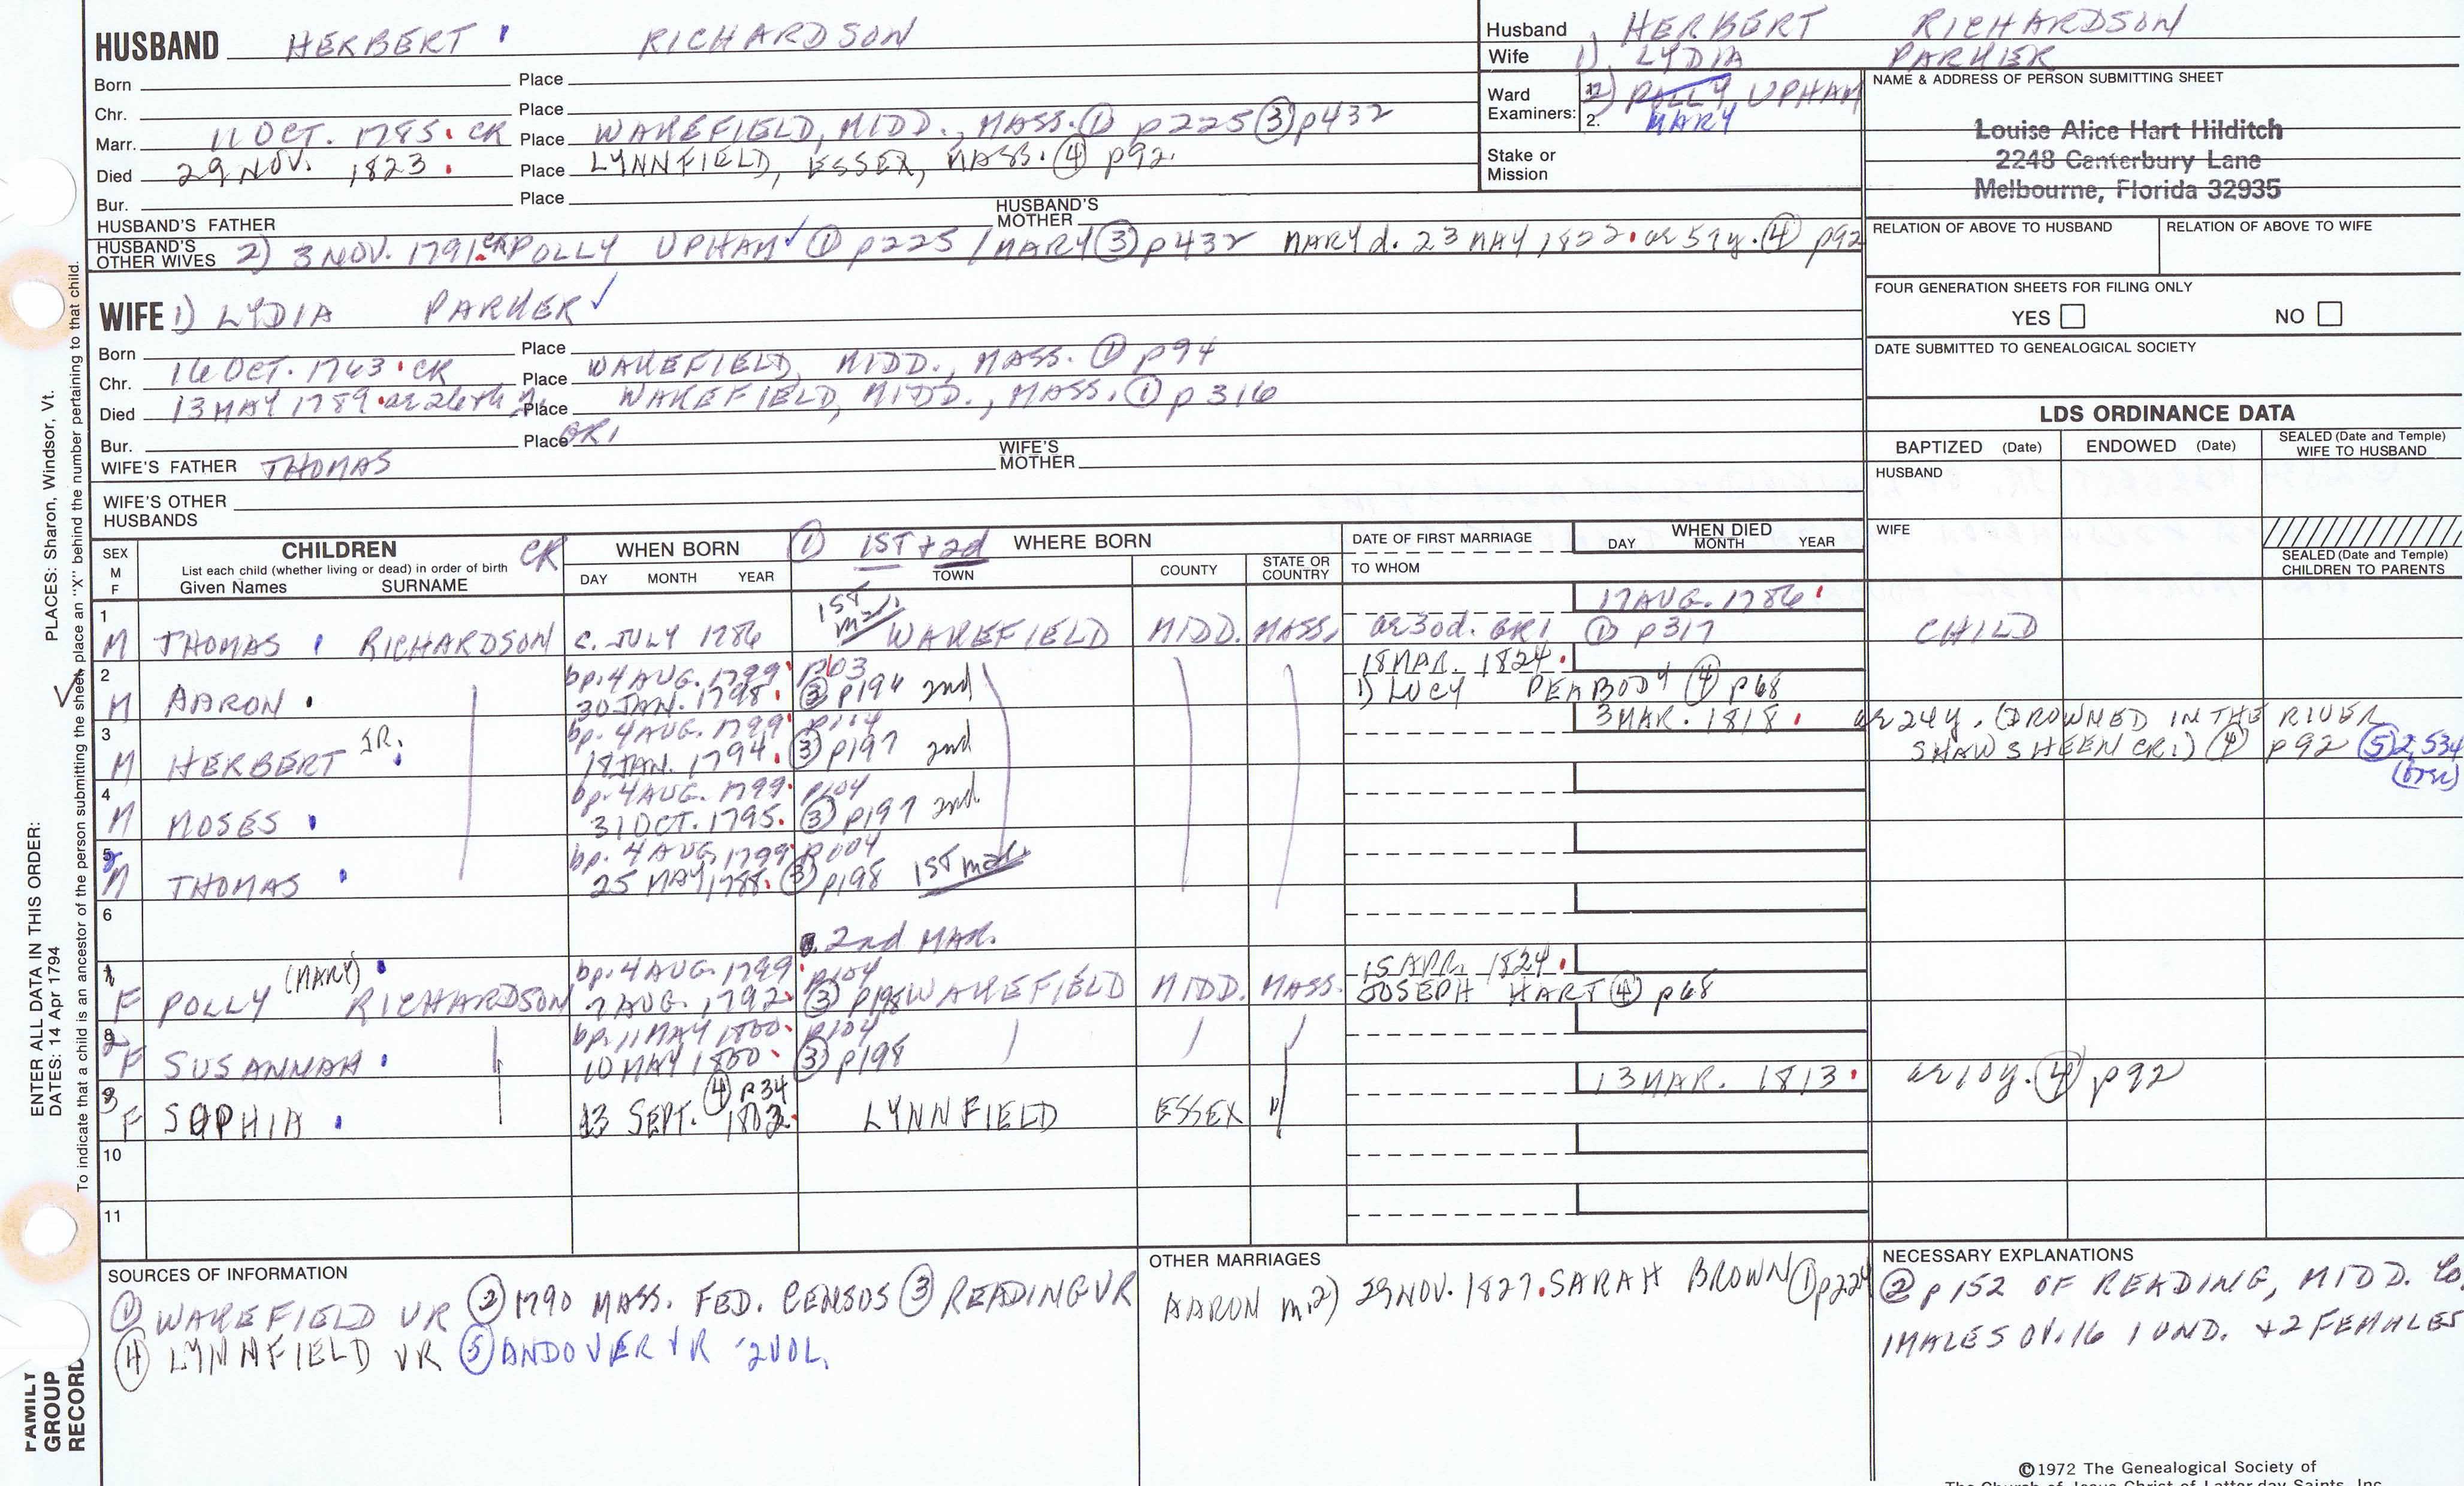 HUSBAND HERBERT RICHARDSON
Born Place
Chr. Place
Marr. 11 OCT. 1785. CR Place WAKEFIELD, MIDD., MASS. ① p225 ③ p432
Died 29 NOV. 1823. Place LYNNFIELD, ESSEX, MASS. ④ p92.
Bur. Place
HUSBAND'S FATHER HUSBAND'S MOTHER
HUSBAND'S OTHER WIVES 2) 3 NOV. 1791. CR POLLY UPHAM ✓ ① p225 / MARY ③ p432 MARY d. 23 MAY, 1822. ae 59y. ④ p92
Husband HERBERT RICHARDSON
Wife 1) LYDIA PARKER
Ward Examiners: 2) POLLY UPHAM
2. MARY
Stake or Mission
NAME & ADDRESS OF PERSON SUBMITTING SHEET
Louise Alice Hart Hilditch
2248 Canterbury Lane
Melbourne, Florida 32935
RELATION OF ABOVE TO HUSBAND RELATION OF ABOVE TO WIFE
FOUR GENERATION SHEETS FOR FILING ONLY
YES NO
DATE SUBMITTED TO GENEALOGICAL SOCIETY
WIFE 1) LYDIA PARKER ✓
Born Place
Chr. 16 OCT. 1763. CR Place WAKEFIELD, MIDD., MASS. ① p94
Died 13 MAY 1789. ae 26th Place WAKEFIELD, MIDD., MASS. ① p316
Bur. Place GR1
WIFE'S FATHER THOMAS WIFE'S MOTHER
WIFE'S OTHER HUSBANDS
LDS ORDINANCE DATA
BAPTIZED (Date) ENDOWED (Date) SEALED (Date and Temple) WIFE TO HUSBAND
HUSBAND
WIFE
SEALED (Date and Temple) CHILDREN TO PARENTS
SEX M F
CHILDREN CR
List each child (whether living or dead) in order of birth
Given Names SURNAME
WHEN BORN ① 1ST + 2d WHERE BORN
DAY MONTH YEAR TOWN COUNTY STATE OR COUNTRY
DATE OF FIRST MARRIAGE
TO WHOM
WHEN DIED
DAY MONTH YEAR
1 1ST 17 AUG. 1786.
M THOMAS RICHARDSON c. JULY 1786 WAKEFIELD MIDD. MASS. ae 30d. GR1 ① p317 CHILD
2 bp. 4 AUG. 1799. p103 18 MAR. 1824.
M AARON 30 JAN. 1798. ③ p194 2nd 1) LUCY PEABODY ④ p68
3 bp. 4 AUG. 1799. p104 3 MAR. 1818. ae 24y. (DROWNED IN THE RIVER
M HERBERT JR. 18 JAN. 1794. ③ p197 2nd SHAWSHEEN CR1) ④ p92 ⑤ 2,534
4 bp. 4 AUG. 1799. p104
M MOSES 31 OCT. 1795. ③ p197 2nd
5 bp. 4 AUG. 1799 p104
M THOMAS 25 MAY, 1788. ③ p198 1ST mar.
6 2nd MAR.
(MARY) bp. 4 AUG. 1799. p104 15 APR. 1824.
F POLLY RICHARDSON 7 AUG. 1792. ③ p198 WAKEFIELD MIDD. MASS. JOSEPH HART ④ p68
8 bp. 11 MAY 1800. p104
F SUSANNAH 10 MAY 1800. ③ p198
④ p34 13 MAR. 1813. ae 10y. ④ p92
F SOPHIA 13 SEPT. 1803. LYNNFIELD ESSEX "
10
11
SOURCES OF INFORMATION
① WAKEFIELD VR ② 1790 MASS. FED. CENSUS ③ READING VR
④ LYNNFIELD VR ⑤ ANDOVER VR 2 VOL.
OTHER MARRIAGES
AARON m. 2) 29 NOV. 1827. SARAH BROWN ① p224
NECESSARY EXPLANATIONS
② p152 OF READING, MIDD. Co.
1 MALES OV. 16 1 UND. + 2 FEMALES
©1972 The Genealogical Society of
The Church of Jesus Christ of Latter-day Saints, Inc.
PLACES: Sharon, Windsor, Vt.
ENTER ALL DATA IN THIS ORDER:
DATES: 14 Apr 1794
To indicate that a child is an ancestor of the person submitting the sheet, place an "X" behind the number pertaining to that child.
FAMILY GROUP RECORD